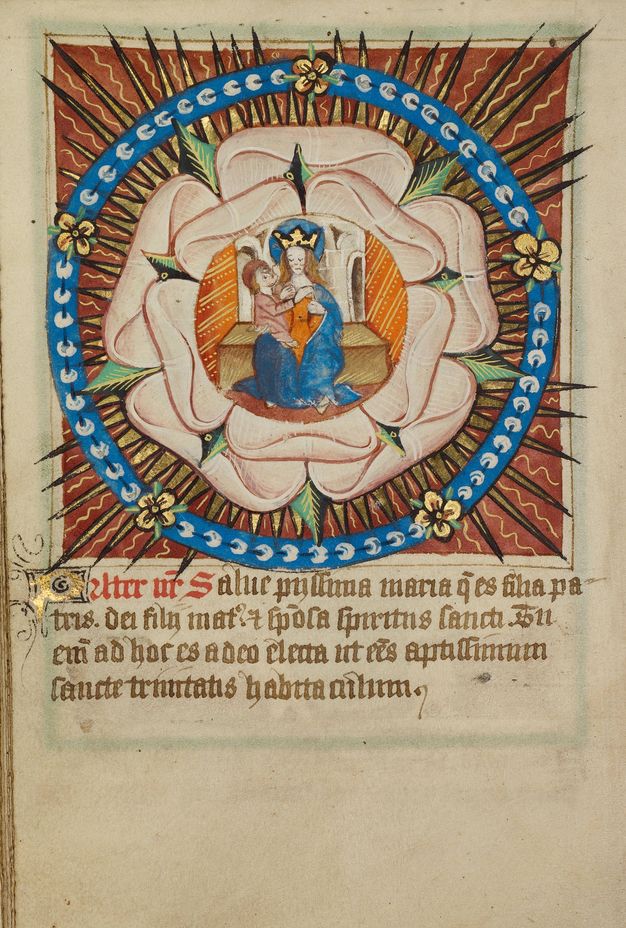 Pater nr̄ Salue pyssima maria q̄ es filia pa-
tris. dei filij mat᷑ ⁊ spōsa spiritus sancti. Tu
em̄ ad hoc es a deo electa ut eēs aptissimum
sancte trinitatis habitaculum.